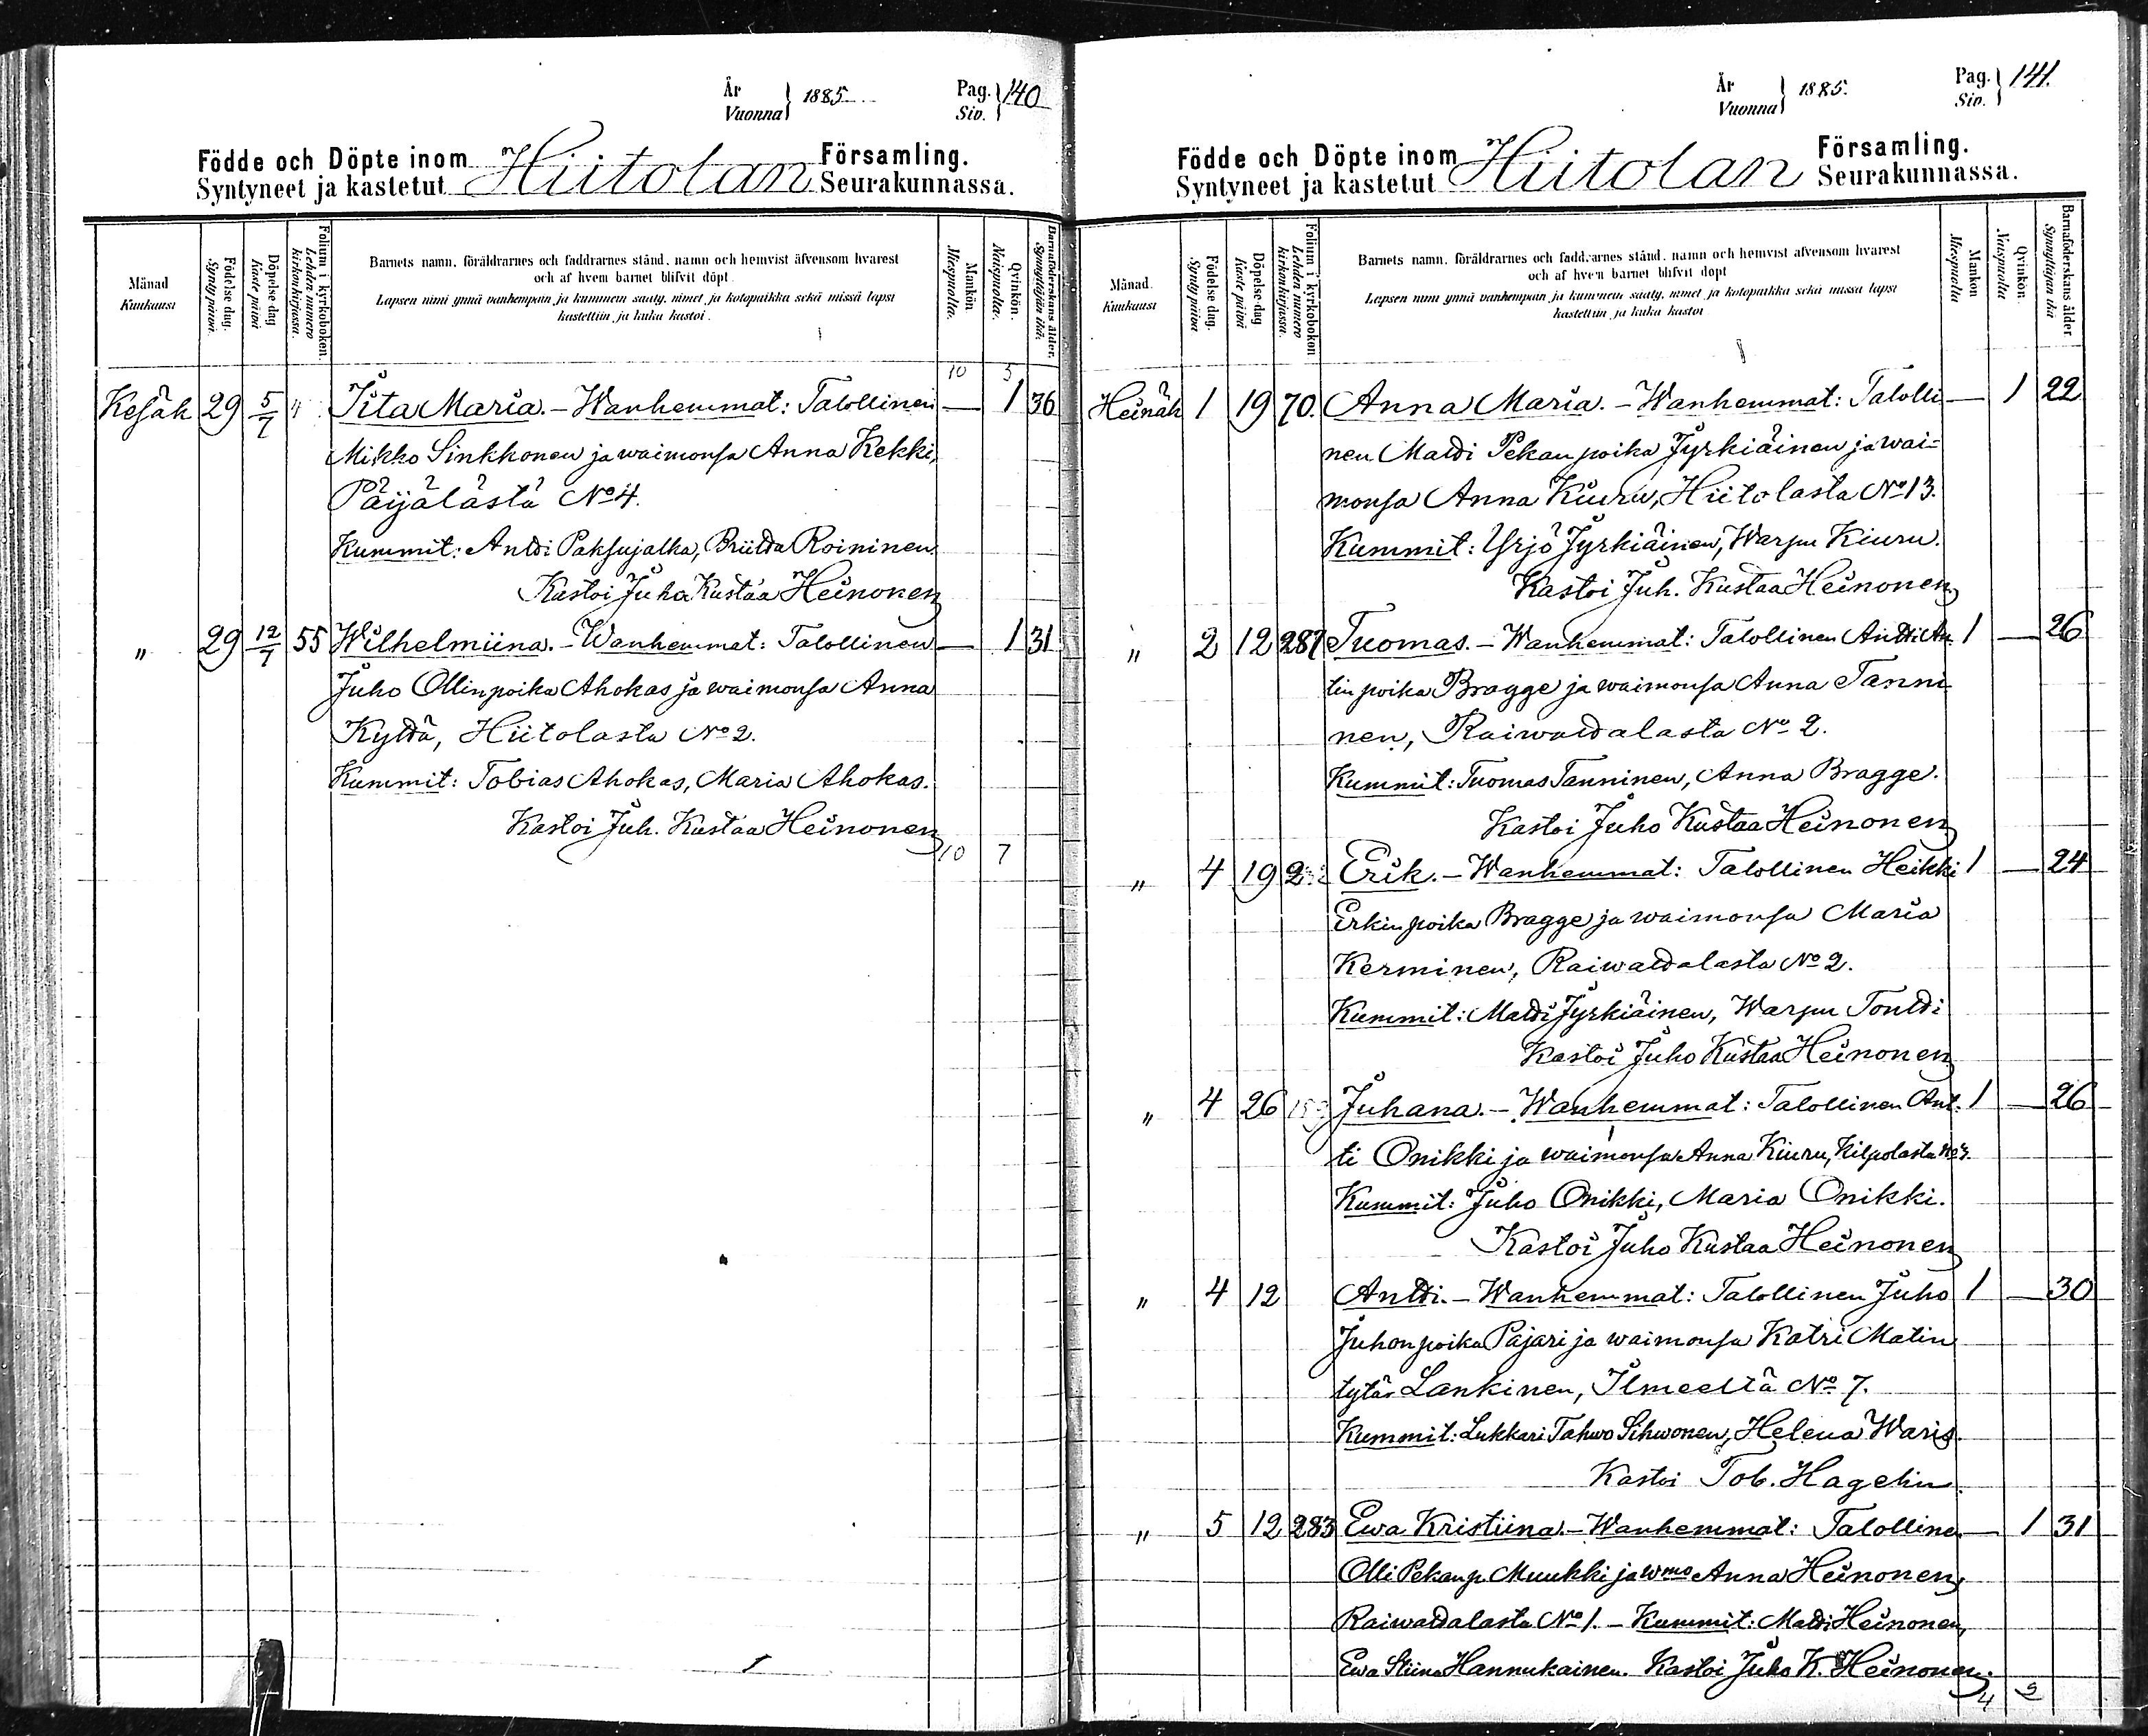 År
Vuonna } 1885
Pag.
Siv. } 140
Födde och Döpte inom Hiitolan Församling.
Syntyneet ja kastetut Seurakunnassa.
Månad
Kuukausi
Födelse dag.
Synty päivä.
Döpelse dag
Kaste päivä
Folium i kyrkoboken.
Lehden numero kirkonkirjassa.
Barnets namn, föräldrarnes och faddrarnes stånd, namn och hemvist äfvensom hvarest
och af hvem barnet blifvit döpt.
Lapsen nimi ynnä vanhempain ja kummein sääty, nimet ja kotopaikka sekä missä lapsi
kastettiin ja kuka kastoi.
Mankön
Miespuolta.
Qvinkön.
Naispuolta.
Barnaföderskans ålder.
Synnyttäjän ikä.
10 5
Kesäk 29 5/7 4 Iita Maria. – Wanhemmat: Talollinen — 1 36
Mikko Sinkkonen ja waimonsa Anna Kekki,
Päijälästä No 4.
Kummit: Antti Paksujalka, Briitta Roininen.
Kastoi Juho Kustaa Heinonen
" 29 12/7 55 Wilhelmiina. – Wanhemmat: Talollinen — 1 31
Juho Ollinpoika Ahokas ja waimonsa Anna
Kyttä, Hiitolasta No 2.
Kummit: Tobias Ahokas, Maria Ahokas.
Kastoi Juh. Kustaa Heinonen
10 7
År
Vuonna } 1885.
Pag.
Siv. } 141.
Födde och Döpte inom Hiitolan Församling.
Syntyneet ja kastetut Seurakunnassa.
Månad.
Kuukausi
Födelse dag.
Synty päivä
Döpelse-dag
Kaste päivä
Folium i kyrkoboken
Lehden numero kirkonkirjassa.
Barnets namn, föräldrarnes och faddrarnes stånd, namn och hemvist äfvensom hvarest
och af hvem barnet blifvit döpt
Lapsen nimi ynnä vanhempain ja kummein sääty, nimet ja kotopaikka sekä missä lapsi
kastettiin ja kuka kastoi
Mankön
Miespuolta
Qvinkön.
Naispuolta
Barnaföderskans ålder.
Synnyttäjän ikä
Heinäk 1 19 70. Anna Maria. – Wanhemmat: Talolli — 1 22
nen Matti Pekanpoika Jyrkiäinen ja wai-
monsa Anna Kiuru, Hiitolasta No 13.
Kummit: Yrjö Jyrkiäinen, Warpu Kiuru.
Kastoi Juh. Kustaa Heinonen
" 2 12 287 Tuomas. – Wanhemmat: Talollinen Antti An- 1 — 26
tin poika Bragge ja waimonsa Anna Tanni
nen, Raiwattalasta No 2.
Kummit: Tuomas Tanninen, Anna Bragge.
Kastoi Juho Kustaa Heinonen
" 4 19 Erik. – Wanhemmat: Talollinen Heikki 1 — 24
Erkin poika Bragge ja waimonsa Maria
Kerminen, Raiwattalasta No 2.
Kummit: Matti Jyrkiäinen, Warpu Tontti
Kastoi Juho Kustaa Heinonen
" 4 26 Juhana. – Wanhemmat: Talollinen Ant- 1 — 26
ti Onikki ja waimonsa Anna Kiuru, Kilpolasta No
Kummit: Juho Onikki, Maria Onikki.
Kastoi Juho Kustaa Heinonen
" 4 12 Antti. – Wanhemmat: Talollinen Juho 1 — 30
Juhonpoika Pajari ja waimonsa Katri Matin
tytär Lankinen, Ilmeeltä No 7.
Kummit: Lukkari Tahwo Sihwonen, Helena Waris.
Kastoi Tob. Hagelin.
" 5 12 283 Ewa Kristiina. – Wanhemmat: Talollinen — 1 31
Olli Pekanp. Muukki ja wmo Anna Heinonen,
Raiwattalasta No 1. – Kummit: Matti Heinonen,
Ewa Stiina Hannukainen. Kastoi Juho K. Heinonen.
4